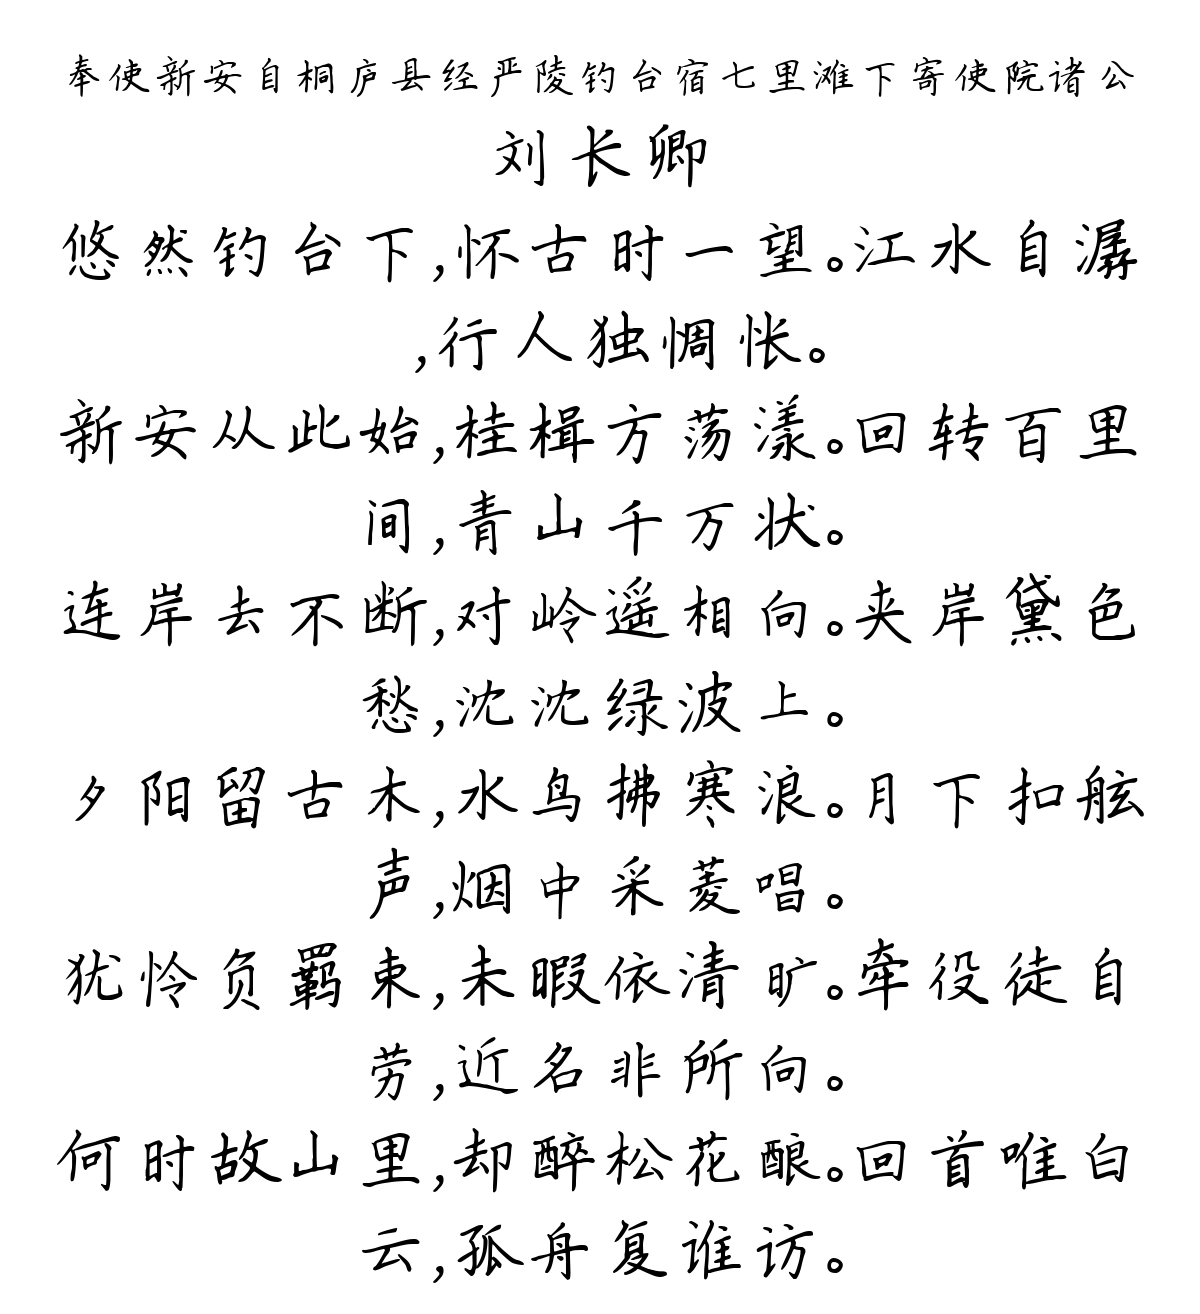 奉使新安自桐庐县经严陵钓台宿七里滩下寄使院诸公
刘长卿
悠然钓台下,怀古时一望。江水自潺
,行人独惆怅。
新安从此始,桂楫方荡漾。回转百里
间,青山千万状。
连岸去不断,对岭遥相向。夹岸黛色
愁,沈沈绿波上。
夕阳留古木,水鸟拂寒浪。月下扣舷
声,烟中采菱唱。
犹怜负羁束,未暇依清旷。牵役徒自
劳,近名非所向。
何时故山里,却醉松花酿。回首唯白
云,孤舟复谁访。